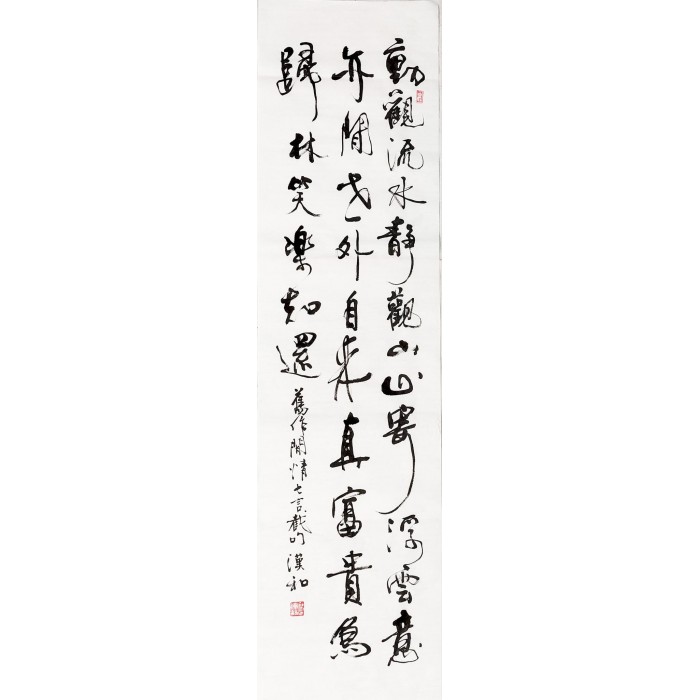 動觀流水靜觀山寄浮雲意
亦閒世外自來真富貴鳥
歸林笑樂知還
舊作閒情七言截句 漢和